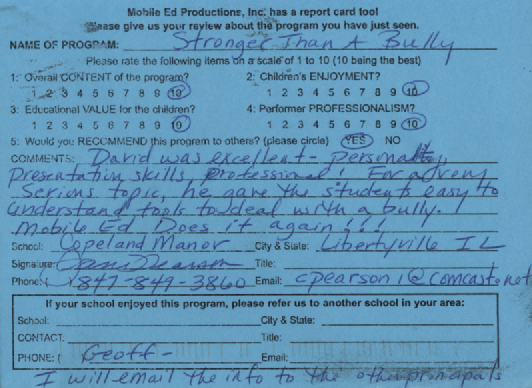 Mobile Ed Productions, Inc. has a report card too!
Please give us your review about the program you have just seen.
NAME OF PROGRAM: Stronger Than A Bully
Please rate the following items on a scale of 1 to 10 (10 being the best)
1: Overall CONTENT of the program? 2: Children's ENJOYMENT?
1 2 3 4 5 6 7 8 9 10 1 2 3 4 5 6 7 8 9 10
3: Educational VALUE for the children? 4: Performer PROFESSIONALISM?
1 2 3 4 5 6 7 8 9 10 1 2 3 4 5 6 7 8 9 10
5: Would you RECOMMEND this program to others? (please circle) YES NO
COMMENTS: David was excellent - personality,
Presentation skills, professional! For a very
Serious topic, he gave the students easy to
understand tools to deal with a bully.
Mobile Ed Does it again!!!
School: Copeland Manor City & State: Libertyville IL
Signature: Pearson Title:
Phone: ( 847-849-3860 Email: cpearson1@comcast.net
If your school enjoyed this program, please refer us to another school in your area:
School: City & State:
CONTACT: Title:
PHONE: ( Geoff - Email:
I will email the info to the other principals